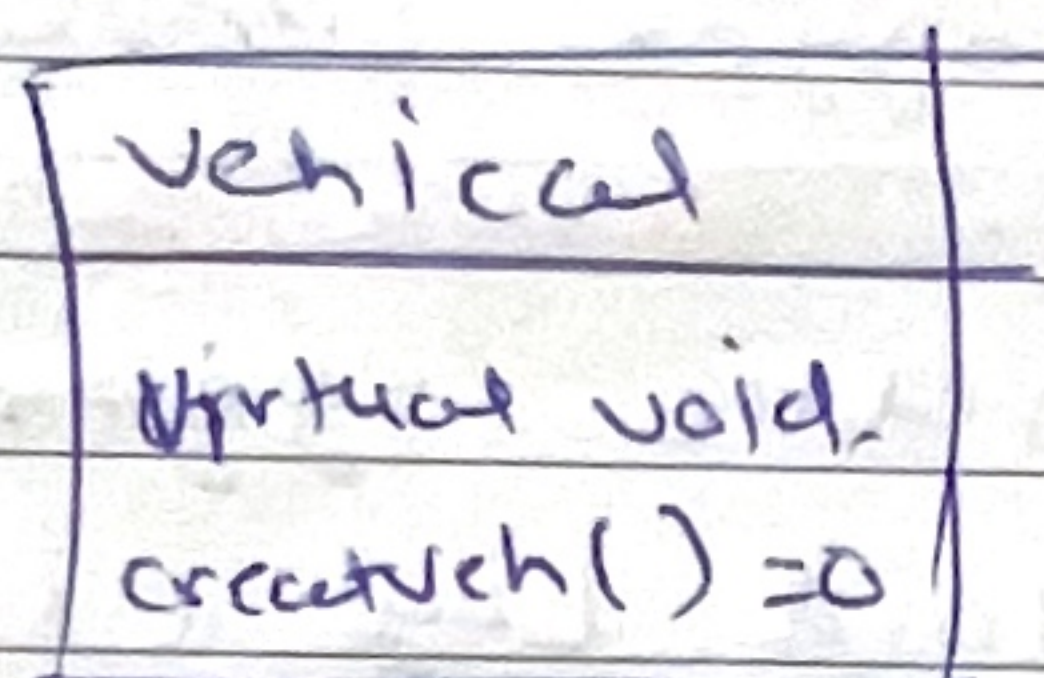 Vehical
Virtual void
createVeh() =0